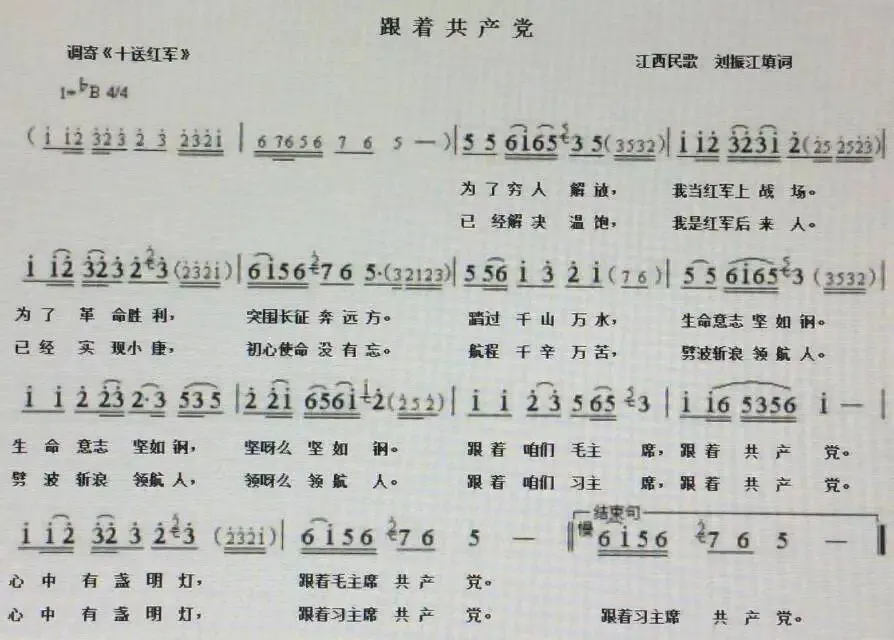 跟着共产党
调寄《十送红军》
江西民歌 刘振江填词
1=♭B 4/4
(i i i2 323 2 3 2321 | 6 7656 7 6 5 —) | 5 5 6i65 3 5 (3532) | i i2 323i 2 (25 2523) |
为了穷人 解放， 我当红军上战 场。
已经解决 温饱， 我是红军后来 人。
i i2 323 2 3 (2321) | 6i56 7 6 5·(32123) | 5 56 i 3 2 i (76) | 5 5 6i65 3 (3532) |
为了 革 命胜利， 突围长征 奔 远方。 踏过 千山 万水， 生命意志 坚如钢。
已经 实 现小康， 初心使命 没有忘。 航程 千辛 万苦， 劈波斩浪 领航人。
i i 2 23 2·3 535 | 2 2i 656i 2 (252) | i i 23 5 65 3 | i i6 5356 i — |
生命意志 坚如钢， 坚呀么 坚如 钢。 跟着 咱们 毛主 席，跟着 共产 党。
劈波斩浪 领航人， 领呀么 领航 人。 跟着 咱们 习主 席，跟着 共产 党。
结束句
慢
i i2 32 3 2 3 (2321) | 6i56 7 6 5 — ‖ 6i56 7 6 5 — ‖
心中 有盏 明灯， 跟着毛主席 共产 党。
心中 有盏 明灯， 跟着习主席 共产 党。 跟着习主席 共产党。